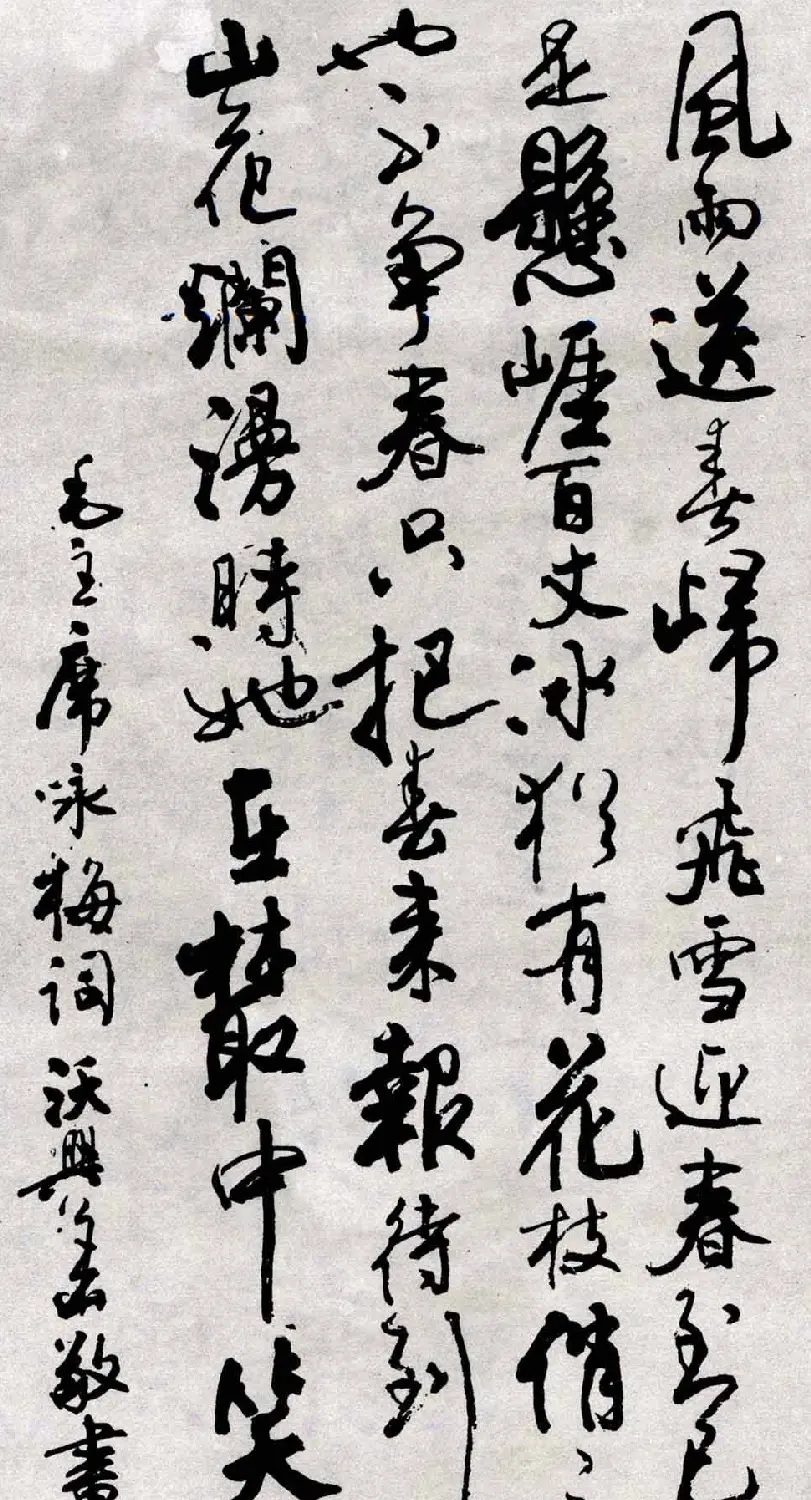 風雨送春歸飛雪迎春到已
是懸崖百丈冰猶有花枝俏俏
也不爭春只把春來報待到
山花爛漫時她在叢中笑
毛主席咏梅詞沃興華敬書